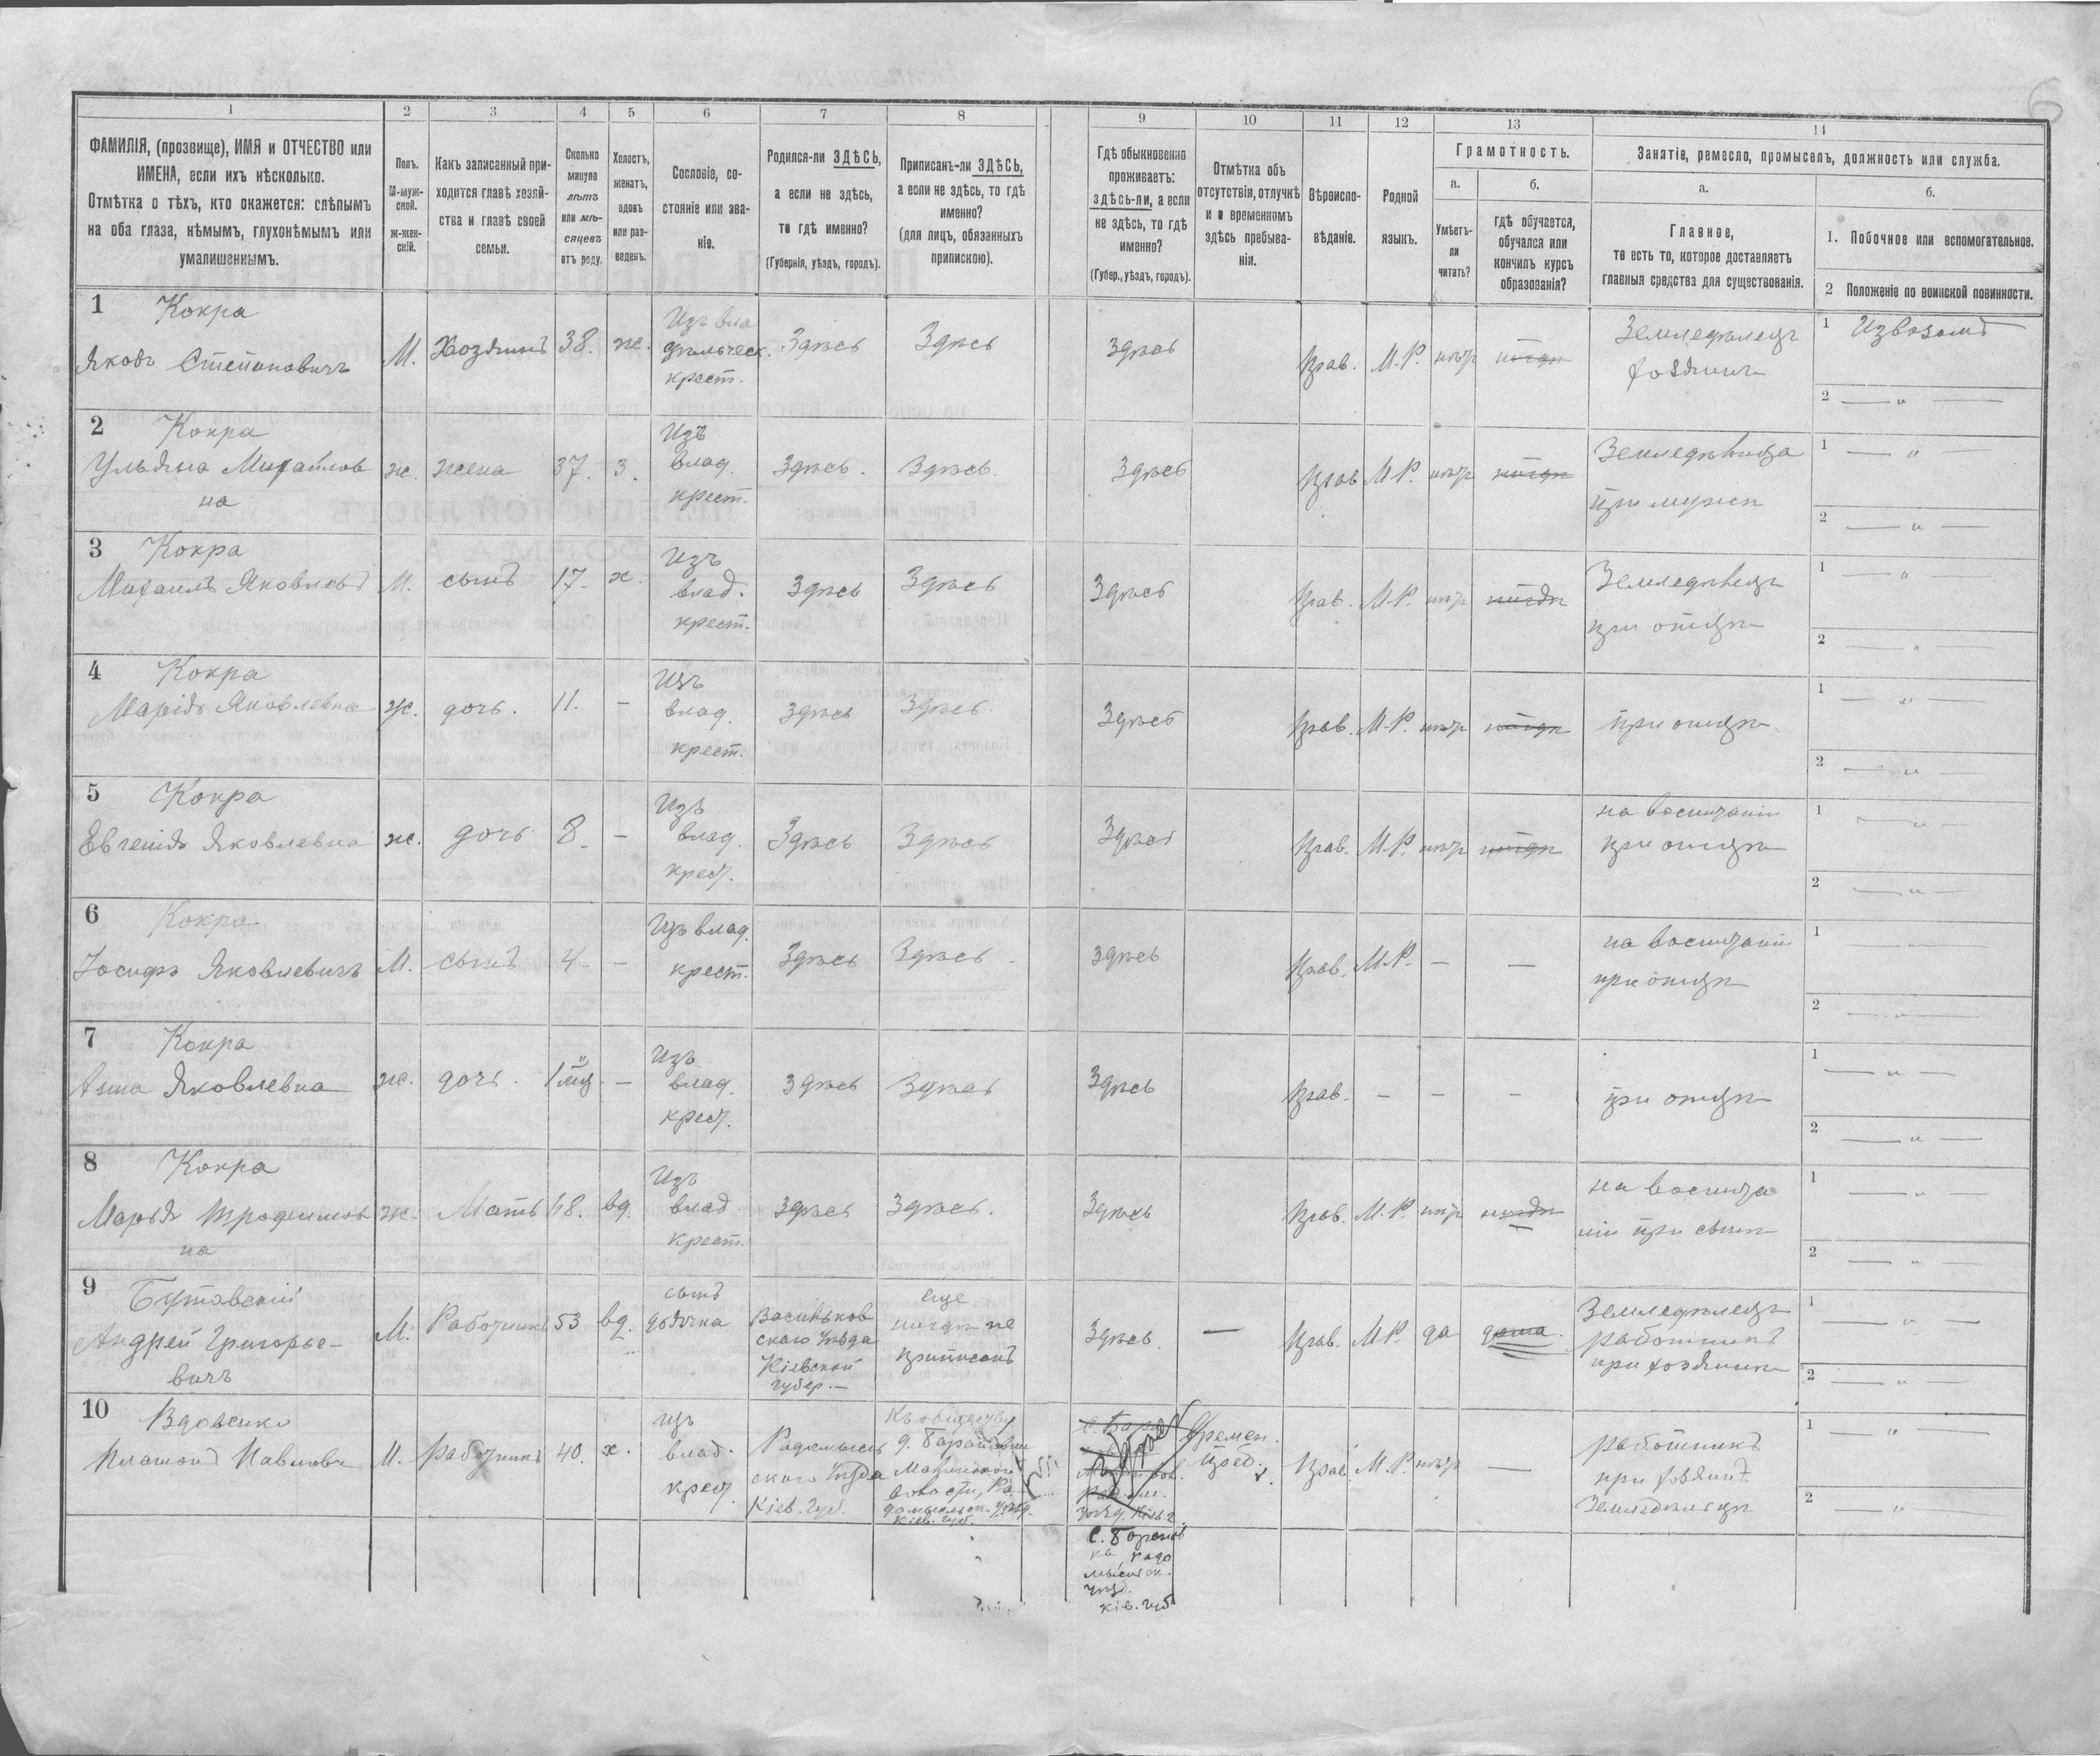 1
2
3
4
5
6
7
8
9
10
11
12
13
14
ФАМИЛІЯ, (прозвище), ИМЯ и ОТЧЕСТВО или
ИМЕНА, если ихъ нѣсколько.
Отмѣтка о тѣхъ, кто окажется: слѣпымъ
на оба глаза, нѣмымъ, глухонѣмымъ или
умалишеннымъ.
Полъ.
М-муж-
ской.
Ж-жен-
скій.
Какъ записанный при-
ходится главѣ хозяй-
ства и главѣ своей
семьи.
Сколько
минуло
лѣтъ
или мѣ-
сяцевъ
отъ роду.
Холостъ,
женатъ,
вдовъ
или раз-
веденъ.
Сословіе, со-
стояніе или зва-
ніе.
Родился-ли ЗДѢСЬ,
а если не здѣсь,
то гдѣ именно?
(Губернія, уѣздъ, городъ).
Приписанъ-ли ЗДѢСЬ,
а если не здѣсь, то гдѣ
именно?
(для лицъ, обязанныхъ
припискою).
Гдѣ обыкновенно
проживаетъ:
здѣсь-ли, а если
не здѣсь, то гдѣ
именно?
(Губер., уѣздъ, городъ).
Отмѣтка объ
отсутствіи, отлучкѣ
и о временномъ
здѣсь пребыва-
ніи.
Вѣроиспо-
вѣданіе.
Родной
языкъ.
Грамотность.
а.
Умѣетъ-
ли
читать?
б.
гдѣ обучается,
обучался или
кончилъ курсъ
образованія?
Занятіе, ремесло, промыселъ, должность или служба.
а.
Главное,
то есть то, которое доставляетъ
главныя средства для существованія.
б.
1. Побочное или вспомогательное.
2 Положеніе по воинской повинности.
1 Кокра
Яковъ Степановичъ
М.
Хозяинъ
38.
ж.
Изъ вла
дѣльческ.
крест.
Здѣсь
Здѣсь
Здѣсь
Прав.
М.Р.
нѣтъ
нигдѣ
Земледѣлецъ
хозяинъ
1 Извозомъ
2 — " —
2 Кокра
Ульяна Михайлов
на
ж.
жена
37.
З.
Изъ
влад.
крест.
Здѣсь.
Здѣсь.
Здѣсь
Прав
М.Р.
нѣтъ
нигдѣ
Земледѣлица
при мужѣ
1 — " —
2 — " —
3 Кокра
Михаилъ Яковлевъ
М.
сынъ
17.
х.
Изъ
влад.
крест.
Здѣсь
Здѣсь
Здѣсь
Прав.
М.Р.
нѣтъ
нигдѣ
Земледѣлецъ
при отцѣ
1 — "
2 — " —
4 Кокра
Марія Яковлевна
Ж.
дочь.
11.
—
Изъ
влад.
крест.
здѣсь
Здѣсь
Здѣсь
Прав.
М.Р.
нѣтъ
нигдѣ
при отцѣ
1 — " —
2 — " —
5 Кокра
Евгенія Яковлевна
ж.
дочь
8.
—
Изъ
влад.
крест.
Здѣсь
Здѣсь
Здѣсь
Прав.
М.Р.
нѣтъ
нигдѣ
на воспитаніи
при отцѣ
1 — " —
2 — " —
6 Кокра
Іосифъ Яковлевичъ
М.
сынъ
4.
—
Изъ влад.
крест.
Здѣсь
Здѣсь
здѣсь
Прав.
М.Р.
—
—
на воспитаніи
при отцѣ
1 — " —
2 — " —
7 Кокра
Анна Яковлевна
ж.
дочь.
1 мц
—
Изъ
влад.
крест.
здѣсь
Здѣсь
Здѣсь
Прав.
—
—
—
при отцѣ
1 — " —
2 — " —
8 Кокра
Марья Трофимов
на
ж.
Мать
68.
вд.
Изъ
влад
крест.
здѣсь
Здѣсь.
Здѣсь
Прав.
М.Р.
нѣтъ
нигдѣ
на воспита
ніи при сынѣ
1 — " —
2 — " —
9 Бутовскій
Андрей Григорье-
вичъ
М.
Работникъ
53
вд.
сынъ
дьячка
Васильков
скаго Уѣзда
Кіевской
губер.—
еще
нигдѣ не
приписанъ
Здѣсь.
—
Прав.
М.Р.
да
дома.
Земледѣлецъ
работникъ
при хозяинѣ
1 — " —
2 — " —
10 Вдовенко
Платонъ Павловъ
М.
работникъ
40.
х.
изъ
влад.
крест.
Радомысль
скаго Уѣзда
Кіев. Губ.
Къ обществу
Ра
домысльск. Уѣзд.
Кіев. губ.
Уѣзд. Кіев. г.
С. Боранов
ка Радо
мысльск.
Уѣзд.
Кіев. губ
Времен.
Преб.
Прав.
М.Р.
нѣтъ
—
работникъ
при хозяинѣ
Земледѣльцѣ
1 — " —
2 — " —